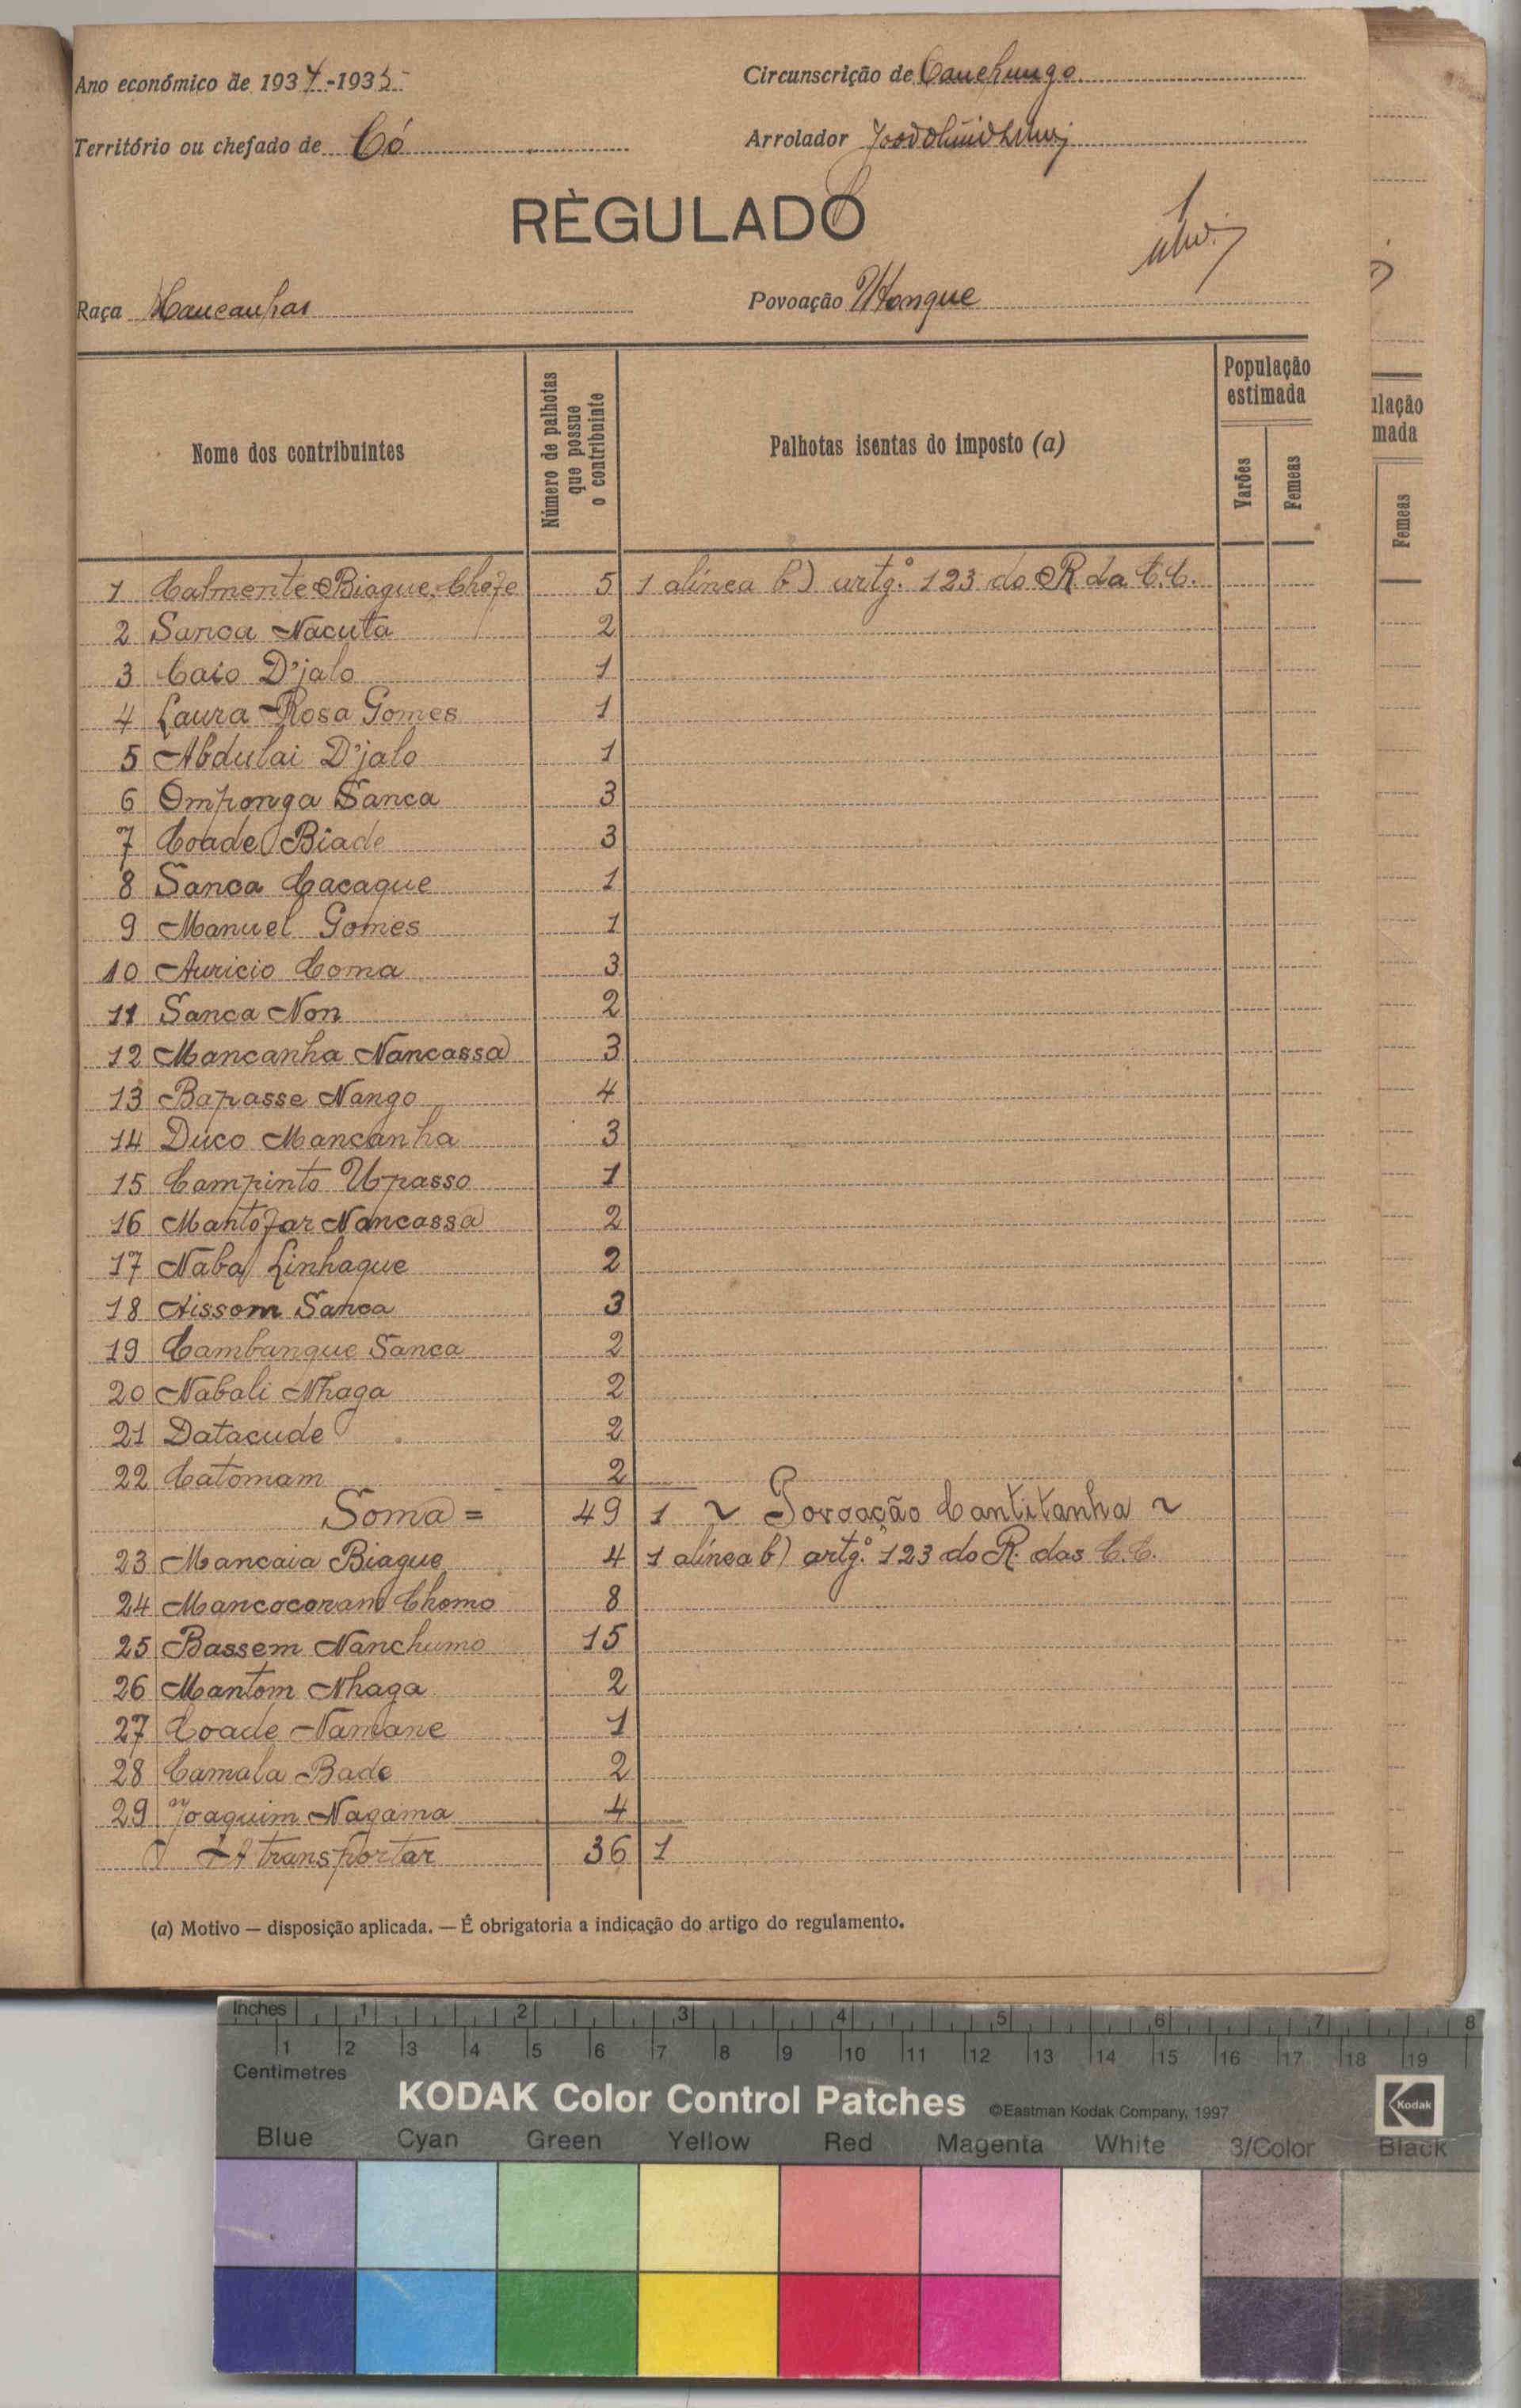 Ano económico de 1934-1935
Circunscrição de Canchungo
Território ou chefado de Có
Arrolador
RÈGULADO
Raça Mancanhas
Povoação
Nome dos contribuintes
Número de palhotas que possue o contribuinte
Palhotas isentas do imposto (a)
População estimada
Varões
Femeas
1 Calmente Biague, Chefe 5 1 alínea b) artgº 123 do R. da C.C.
2 Sanca Nacuta 2
3 Caio D'jalo 1
4 Laura Rosa Gomes 1
5 Abdulai D'jalo 1
6 Omponga Sanca 3
7 Coade Biade 3
8 Sanca Cacaque 1
9 Manuel Gomes 1
10 Auricio Coma 3
11 Sanca Non 2
12 Mancanha Nancassa 3
13 Bapasse Nango 4
14 Duco Mancanha 3
15 Campinto Upasso 1
16 Mantofar Nancassa 2
17 Naba Linhaque 2
18 Aissom Sanca 3
19 Cambanque Sanca 2
20 Nabali Nhaga 2
21 Datacude 2
22 Catomam 2
Soma = 49 1 ~ Povoação Cantitanha ~
23 Mancaia Biague 4 1 alínea b) artgº 123 do R. das C.C.
24 Mancocoram Chomo 8
25 Bassem Nanchumo 15
26 Mantom Nhaga 2
27 Coade Namane 1
28 Camala Bade 2
29 Joaquim Nagama 4
A transportar 36 1
(a) Motivo — disposição aplicada. — É obrigatoria a indicação do artigo do regulamento.
ulação
mada
Femeas
Inches 1 2 3 4 5 6 7 8
1 2 3 4 5 6 7 8 9 10 11 12 13 14 15 16 17 18 19
Centimetres
KODAK Color Control Patches ©Eastman Kodak Company, 1997 Kodak
Blue Cyan Green Yellow Red Magenta White 3/Color Black